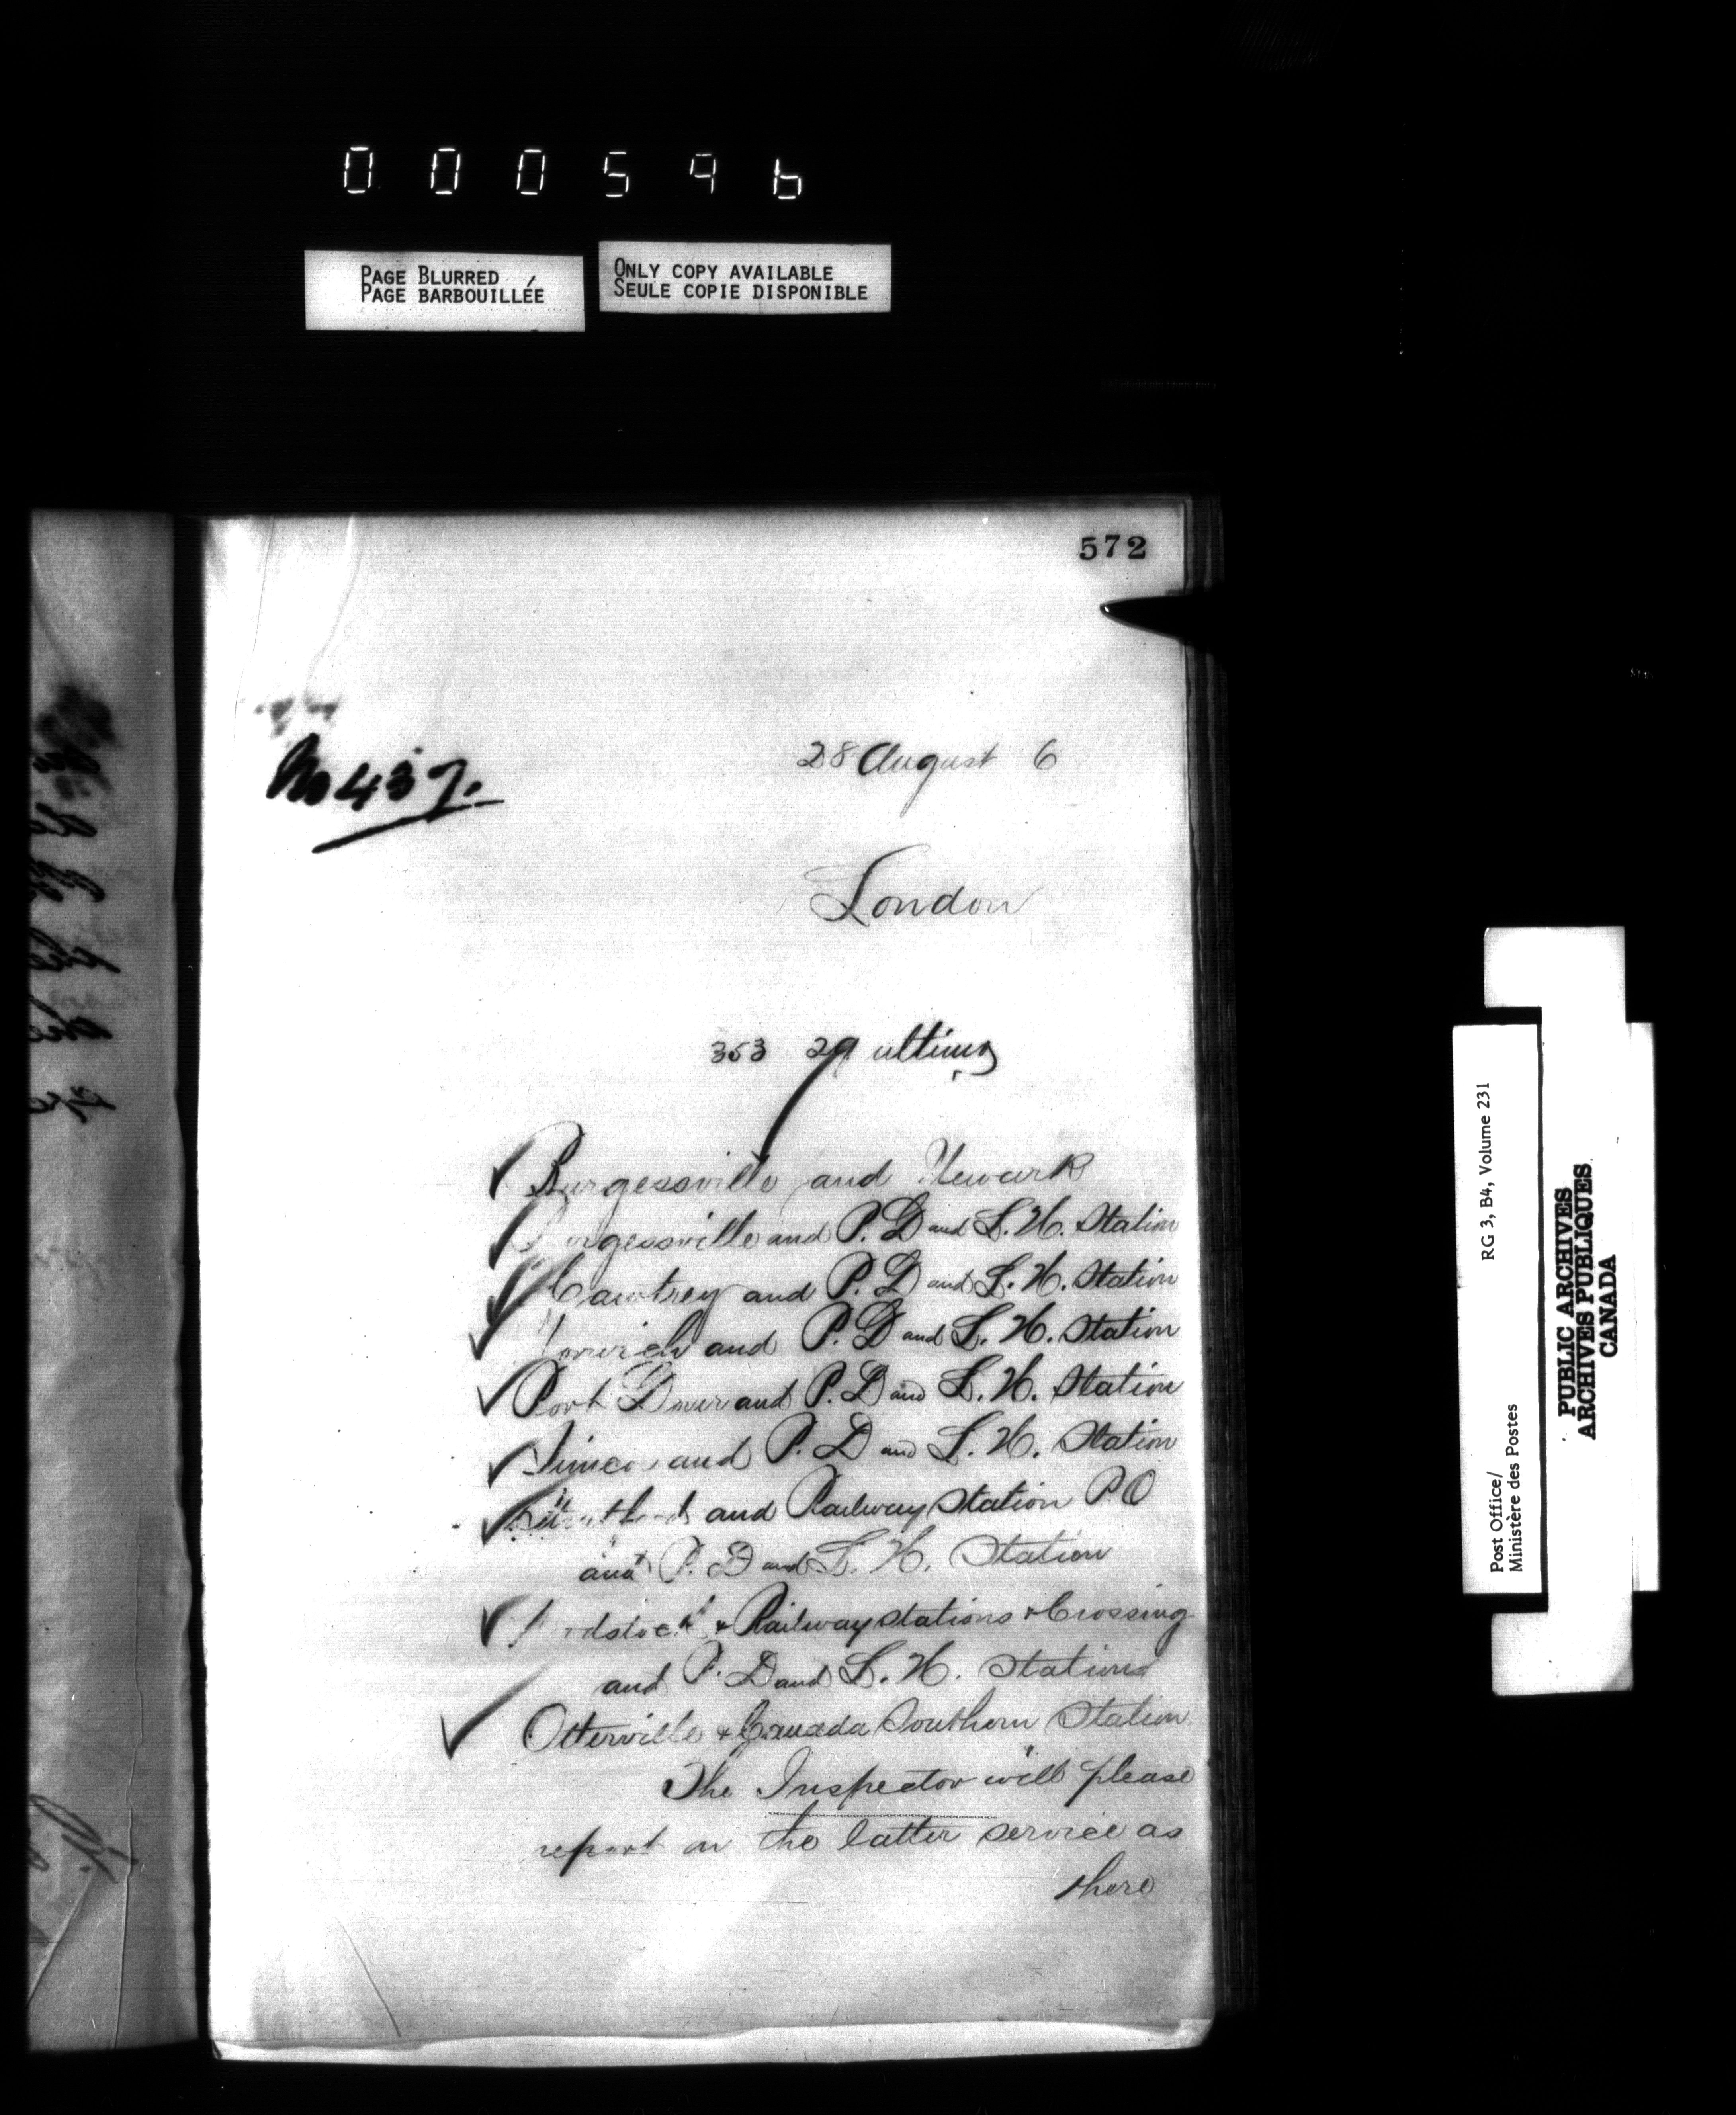 000596
PAGE BLURRED
PAGE BARBOUILLÉE
ONLY COPY AVAILABLE
SEULE COPIE DISPONIBLE
572
No 437.
28 August 6
London
353 29 ultimo
Burgessville and Newark
Burgessville and P. D and L. H. Station
Hawtrey and P. D and L. H. Station
Norwich and P. D and L. H. Station
Port Dover and P. D and L. H. Station
Simcoe and P. D and L. H. Station
and Railway Station P.O
and P. D and L. H. Station
Woodstock & Railway stations & Crossing
and P. D and L. H. Stations
Otterville & Canada Southern Station
The Inspector will please
report on the latter service as
there
Post Office/
Ministère des Postes
RG 3, B4, Volume 231
PUBLIC ARCHIVES
ARCHIVES PUBLIQUES
CANADA